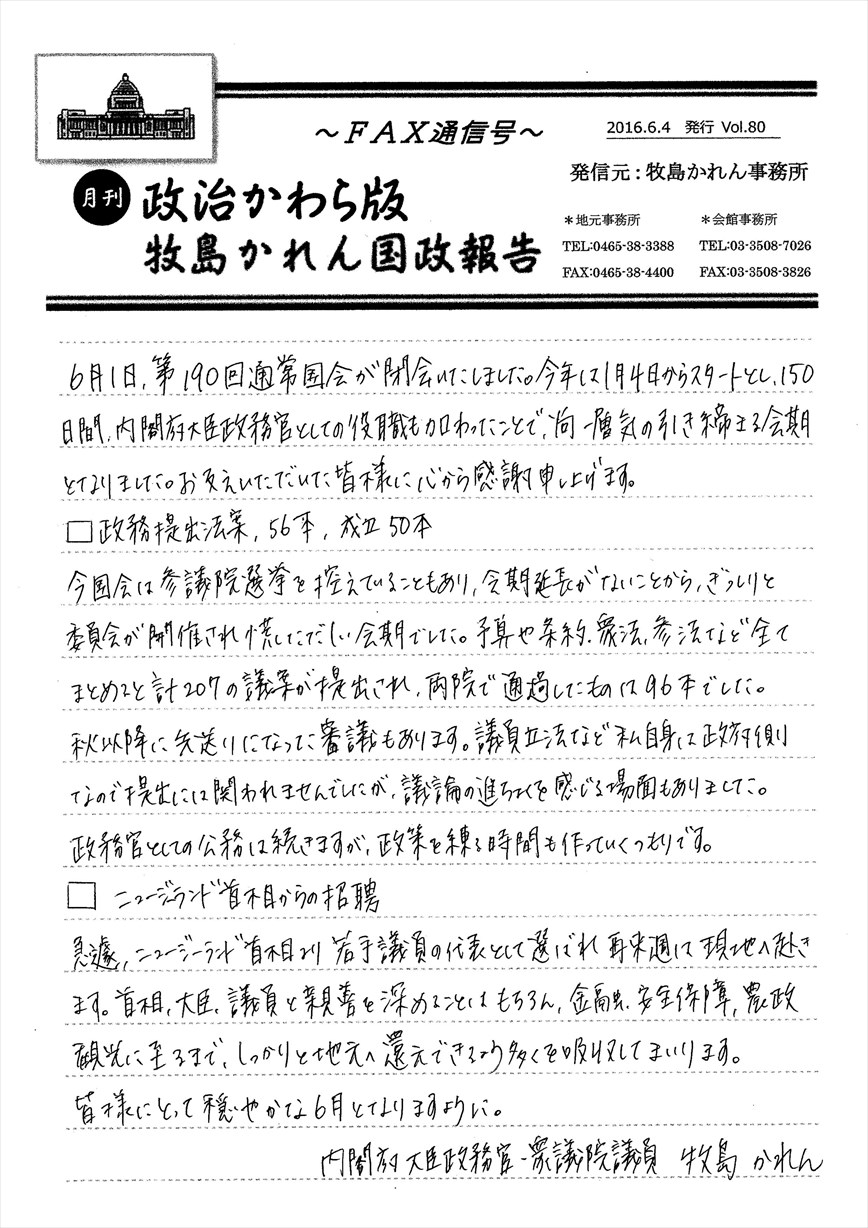 ～ＦＡＸ通信号～
2016.6.4　発行 Vol.80
発信元：牧島かれん事務所
月刊 政治かわら版
牧島かれん国政報告
＊地元事務所　＊会館事務所
TEL:0465-38-3388　TEL:03-3508-7026
FAX:0465-38-4400　FAX:03-3508-3826
6月1日、第190回通常国会が閉会いたしました。今年は1月4日からスタートとし、150
日間、内閣府大臣政務官としての役職も加わったことで、尚一層気の引き締まる会期
となりました。お支えいただいた皆様に心から感謝申し上げます。
□政務提出法案、56本、成立50本
今国会は参議院選挙を控えていることもあり、会期延長がないことから、ぎっしりと
委員会が開催され慌しただしい会期でした。予算や条約、衆法、参法など全て
まとめると計207の議案が提出され、両院で通過したものは96本でした。
秋以降に先送りになった審議もあります。議員立法など私自身は政府側
なので提出には関われませんでしたが、議論の進ちょくを感じる場面もありました。
政務官としての公務は続きますが、政策を練る時間も作っていくつもりです。
□ ニュージーランド首相からの招聘
急遽、ニュージーランド首相より若手議員の代表として選ばれ再来週は現地へ赴き
ます。首相、大臣、議員と親善を深めることはもちろん、金融、安全保障、農政
観光に至るまで、しっかりと地元へ還元できるよう多くを吸収してまいります。
皆様にとって穏やかな6月となりますように。
内閣府大臣政務官・衆議院議員　牧島 かれん